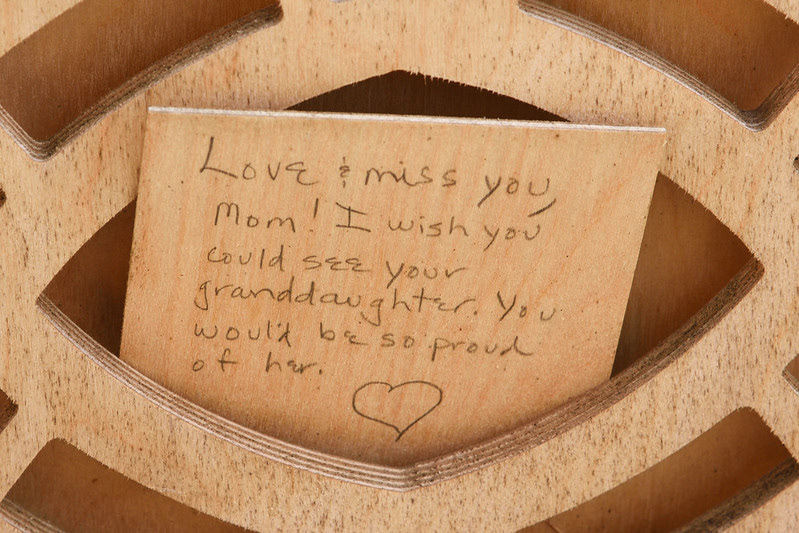 Love & miss you,
Mom! I wish you
could see your
granddaughter. You
would be so proud
of her.